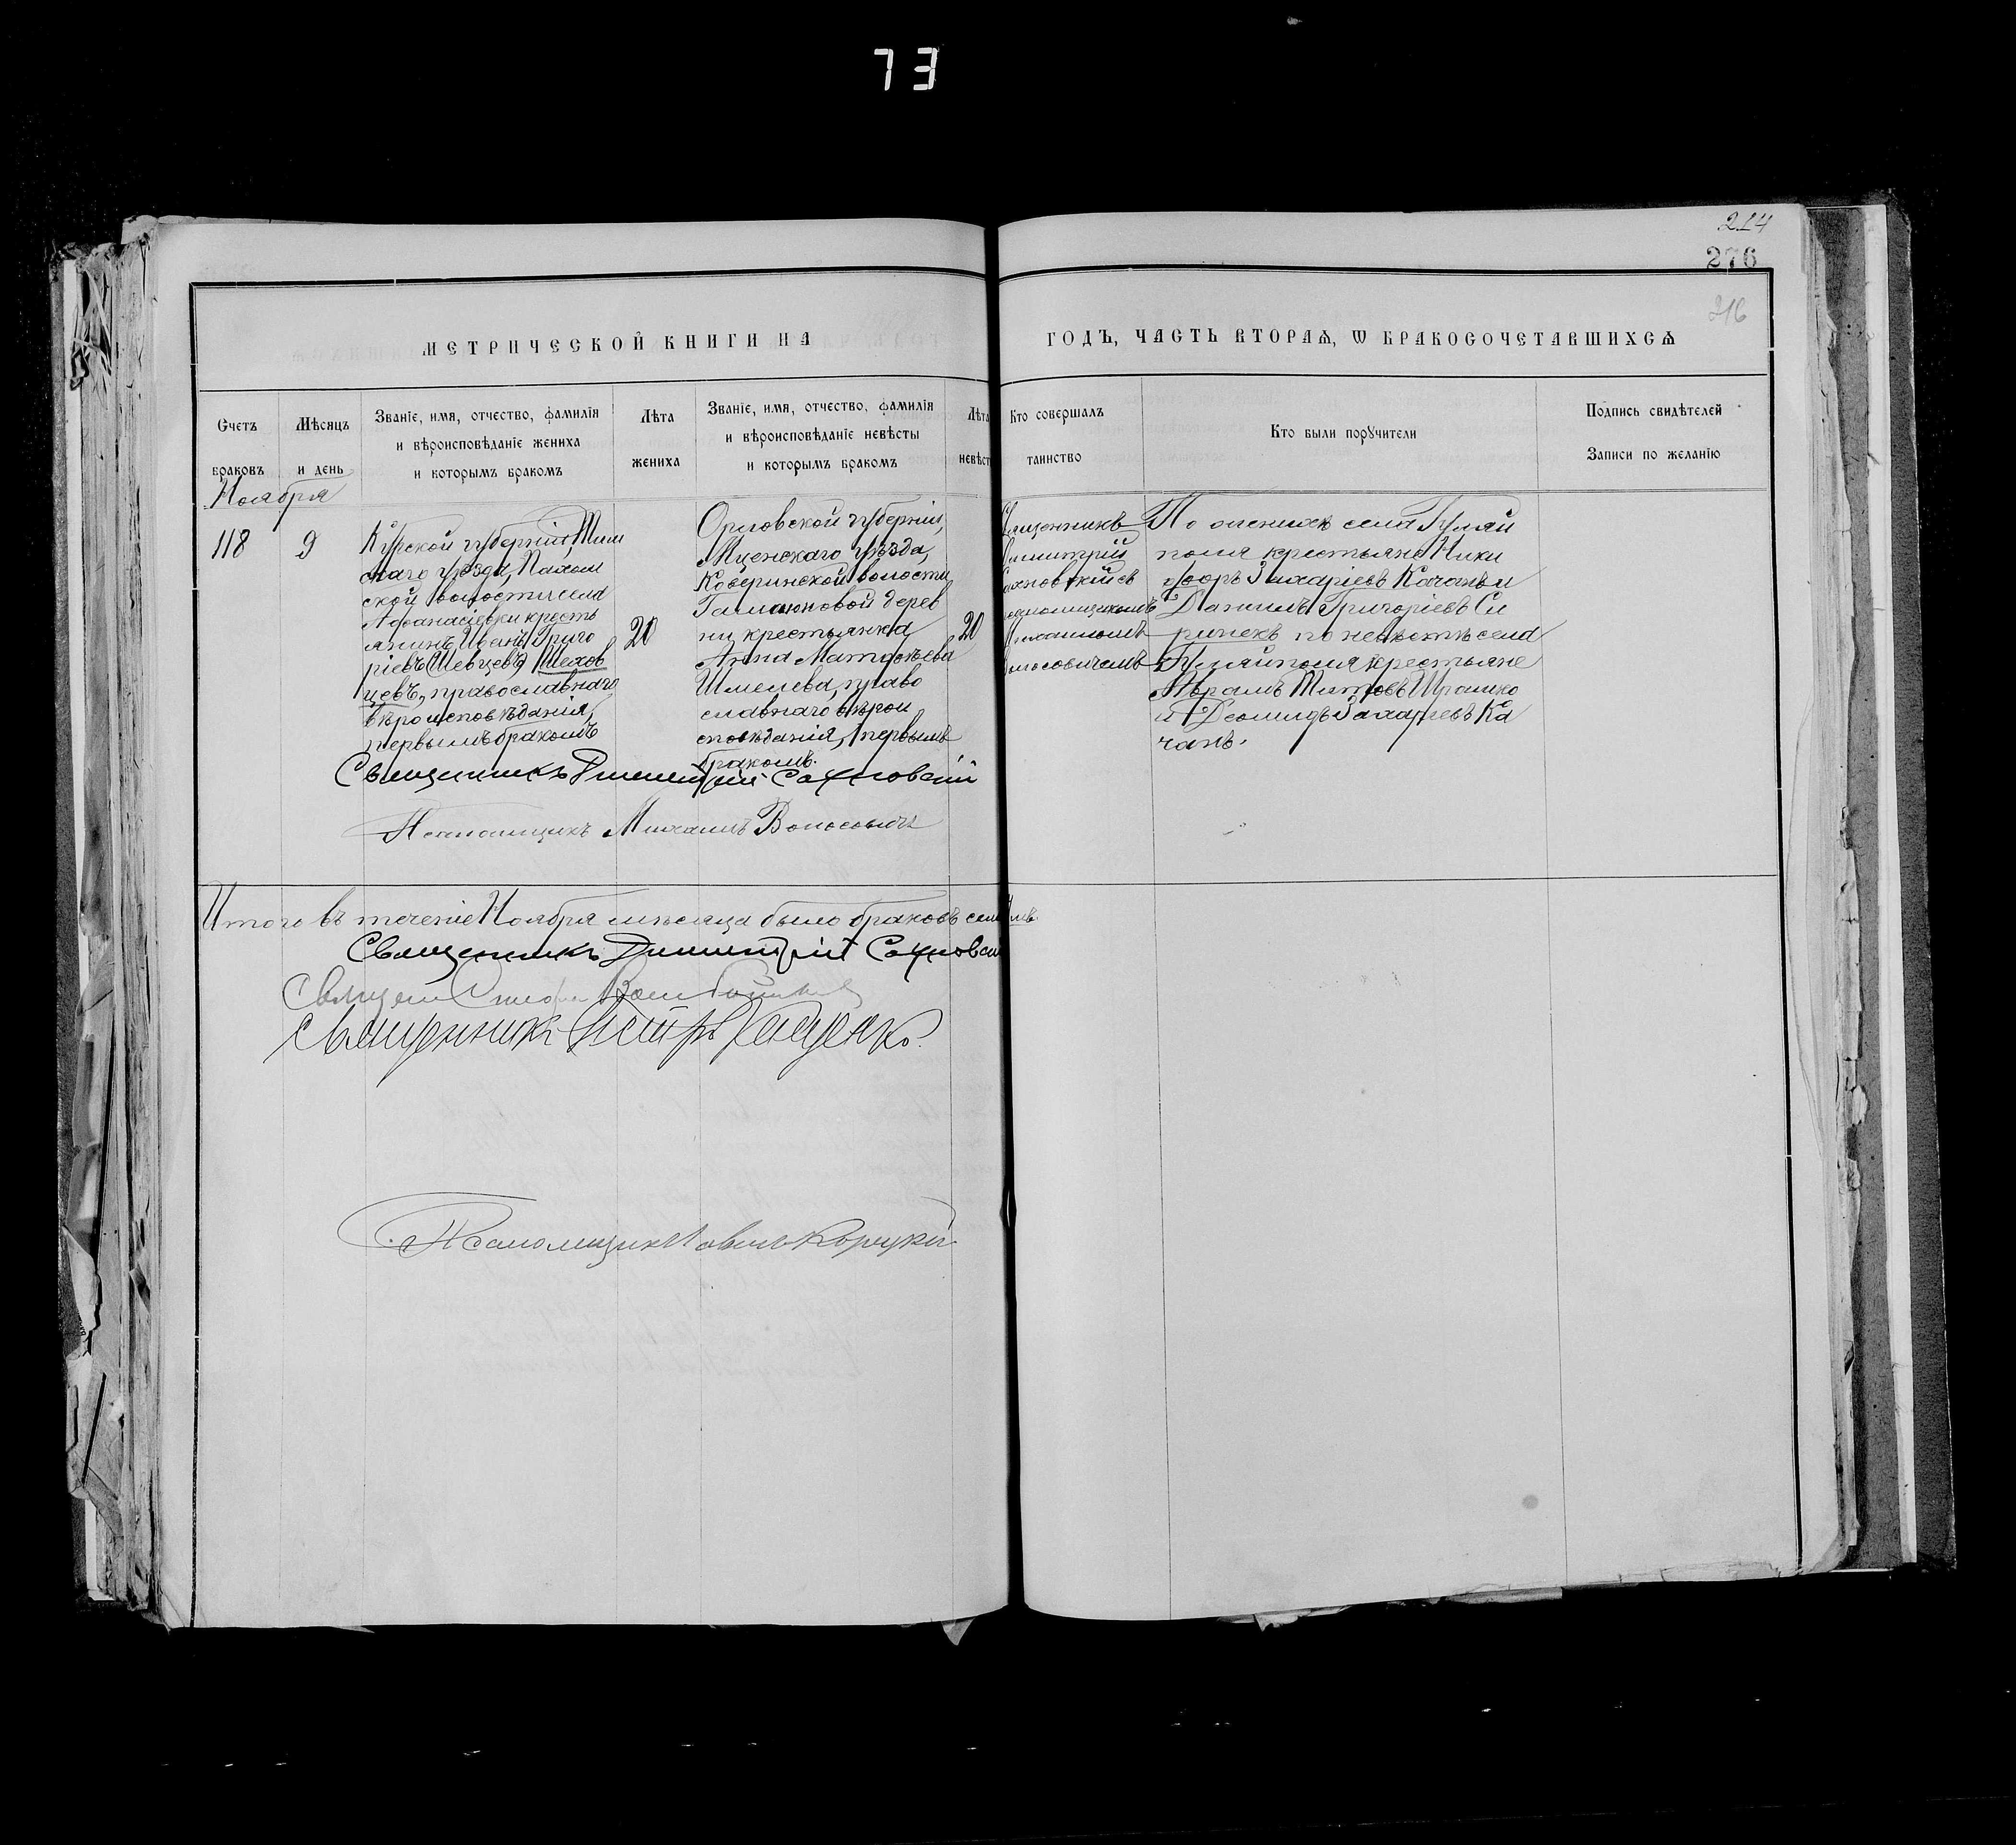 73
214
276
216
МЕТРИЧЕСКОЙ КНИГИ НА
ГОДЪ, ЧАСТЬ ВТОРАѦ, Ѡ БРАКОСОЧЕТАВШИХСѦ
Счетъ
браковъ
Мѣсяцъ
и день
Званіе, имя, отчество, фамилія
и вѣроисповѣданіе жениха
и которымъ бракомъ
Лѣта
жениха
Званіе, имя, отчество, фамилія
и вѣроисповѣданіе невѣсты
и которымъ бракомъ
Лѣта
невѣст
Кто совершалъ
таинство
Кто были порꙋчители
Подпись свидѣтелей
Записи по желанію
Ноября
118
9
Курской губерніи, Тим
скаго уѣзда,
ской волости села
Афанасіевки кресть
янинъ Иванъ Григо
ріевъ (Шевцевъ) Шехов
цевъ, православнаго
вѣроисповѣданія,
первымъ бракомъ
20
Орловской губерніи,
Мценскаго уѣзда,
волости
дерев
ни крестьянка
Анна Матѳѣева
Шмелева, право
славнаго вѣрои
сповѣданія, первымъ
бракомъ.
20
Священникъ
Димитрій
ахновскій съ
саломщикомъ
Михаиломъ
Волосовичемъ
По женихѣ села Гуляй
поля крестьяне Ники
форъ Захаріевъ Качанъ и
Даніилъ Григоріевъ Си
по невѣстѣ села
Гуляйполя крестьяне
Аврамъ Титовъ
и Деомидъ Захаріевъ Ка
чанъ.
Священникъ Димитрій Сахновскій
Псаломщикъ Михаилъ Волосовичъ
Итого въ теченіе Ноября мѣсяца было браковъ семь
Священникъ Димитрій Сахновскій
Священникъ Петръ
Псаломщикъ Павелъ Корецкій